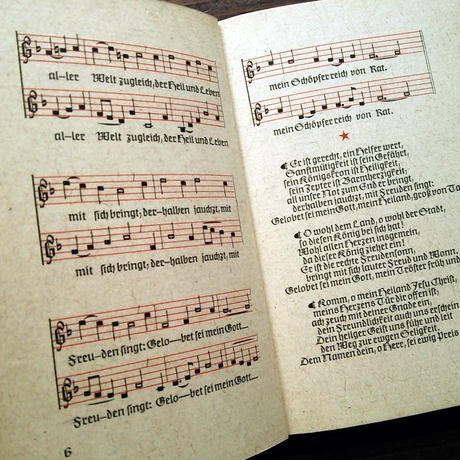 al-ler Welt zugleich, der Heil und Leben
al-ler Welt zugleich, der Heil und Leben
mit sich bringt; der-halben jauchzt, mit
mit sich bringt; der-halben jauchzt, mit
Freu-den singt: Gelo-bet sei mein Gott
Freu-den singt: Gelo-bet sei mein Gott
6
mein Schöpfer reich von Rat.
mein Schöpfer reich von Rat.
Er ist gerecht, ein Helfer wert,
Sanftmütigkeit ist sein Gefährt,
sein Königskron ist Heiligkeit,
sein Zepter ist Barmherzigkeit,
all unsre Not zum End er bringt,
derhalben jauchzt, mit Freuden singt:
Gelobet sei mein Gott, mein Heiland, groß von Tat
O wohl dem Land, o wohl der Stadt,
so diesen König bei sich hat!
Wohl allen Herzen insgemein,
da dieser König ziehet ein!
Er ist die rechte Freudensonn,
bringt mit sich lauter Freud und Wonn.
Gelobet sei mein Gott, mein Tröster früh und
Komm, o mein Heiland Jesu Christ,
meins Herzens Tür dir offen ist;
ach zeuch mit deiner Gnade ein,
dein Freundlichkeit auch uns erschein
Dein heilger Geist uns führ und leit
den Weg zur ewgen Seligkeit.
Dem Namen dein, o Herr, sei ewig Preis